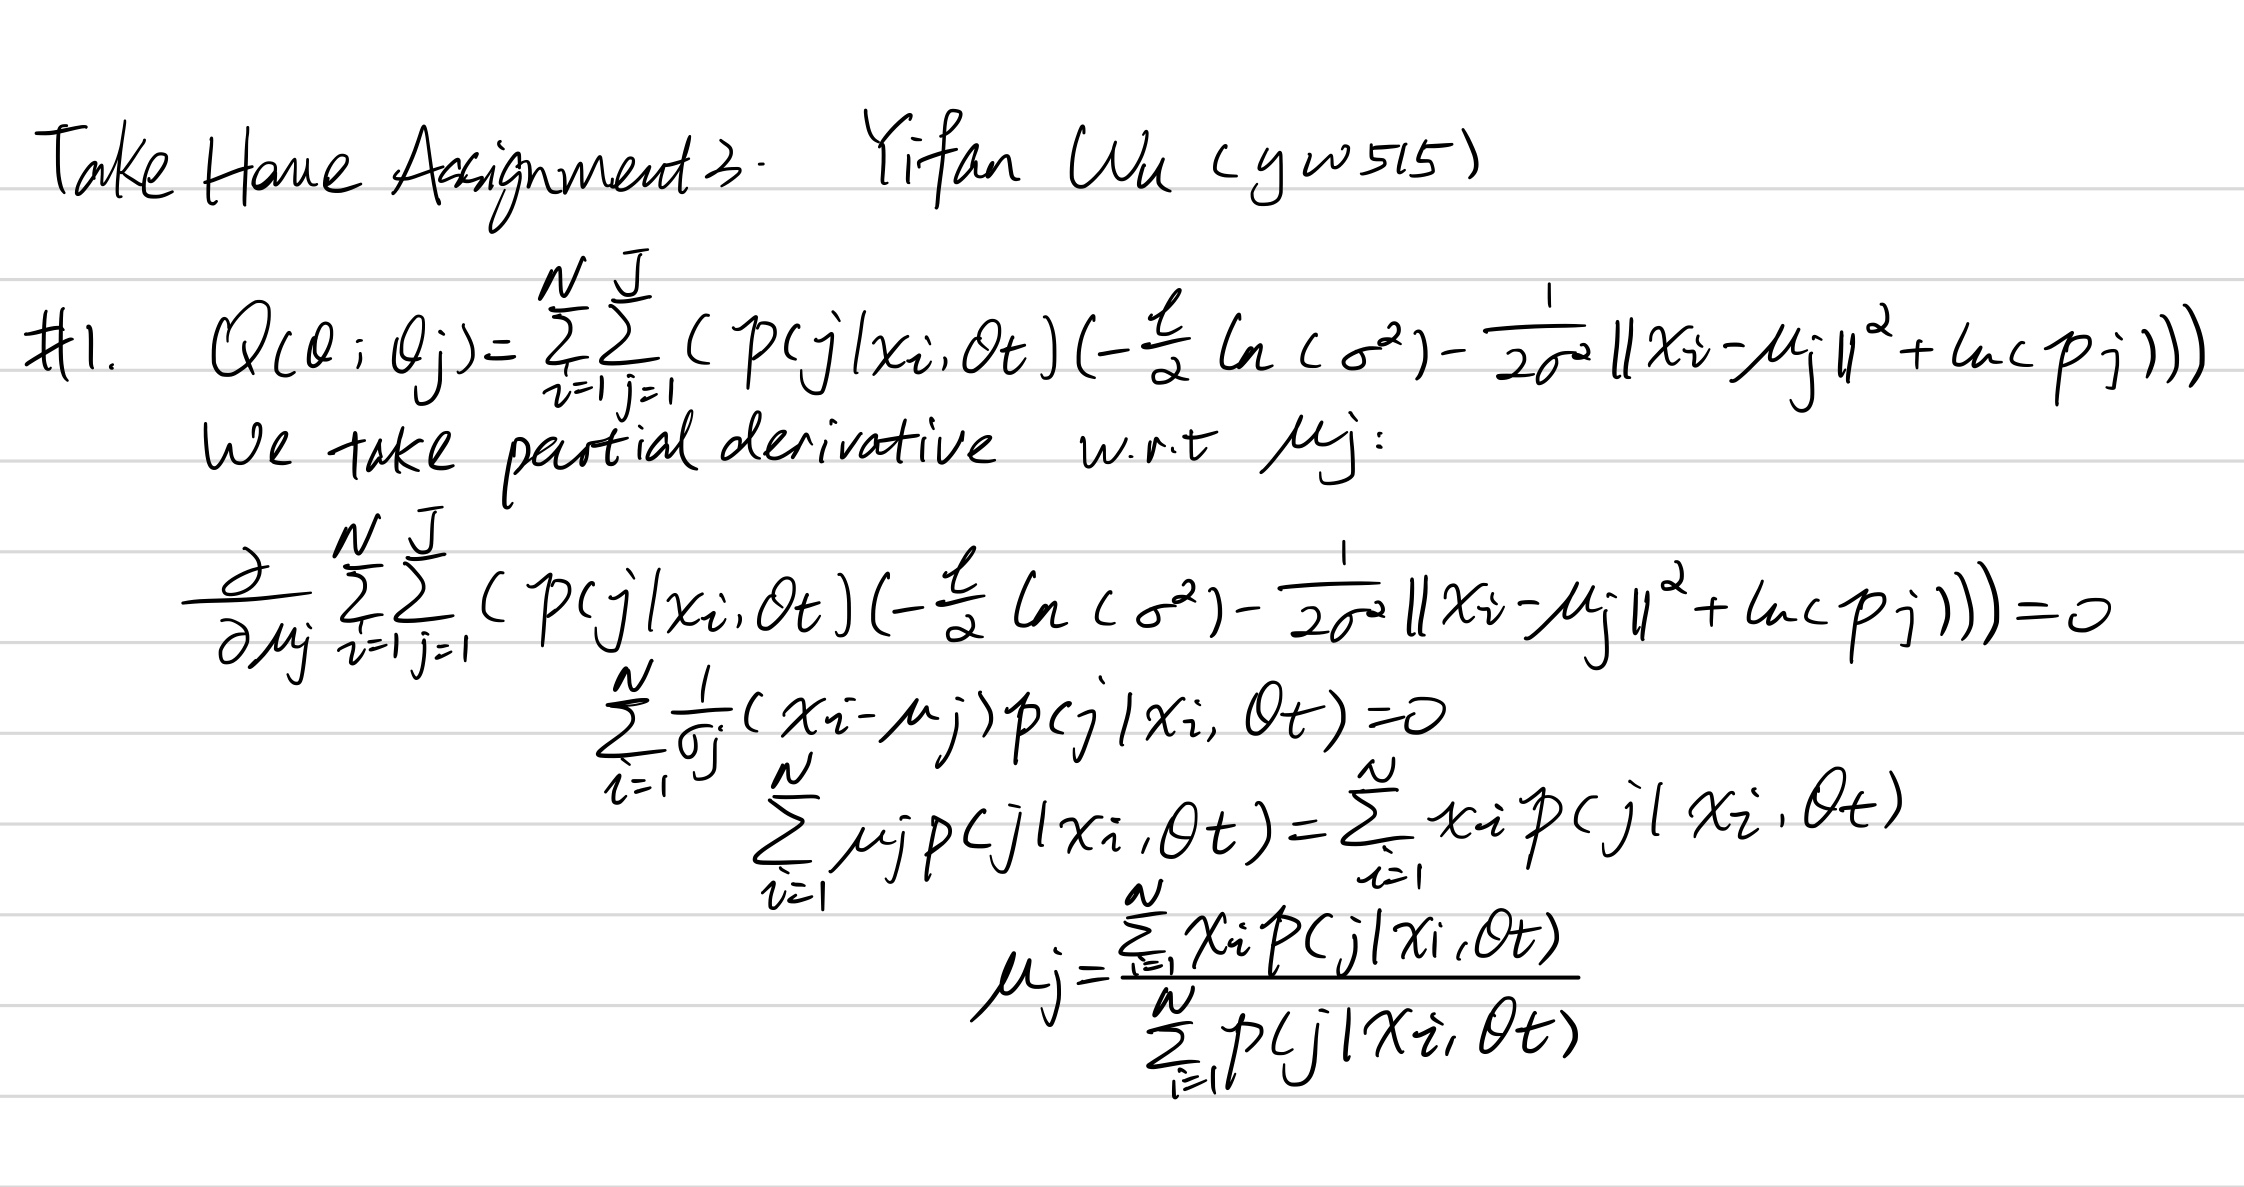 Take Home Assignment 3. Yifan Wu (yw515)
#1. Q(θ; θj) = ∑_{i=1}^{N} ∑_{j=1}^{J} (p(j|xi, θt)(-ℓ/2 ln(σ²) - 1/(2σ²) ||xi - μj||² + ln(pj)))
We take partial derivative w.r.t μj:
∂/∂μj ∑_{i=1}^{N} ∑_{j=1}^{J} (p(j|xi, θt)(-ℓ/2 ln(σ²) - 1/(2σ²) ||xi - μj||² + ln(pj))) = 0
∑_{i=1}^{N} 1/σj (xi - μj) p(j|xi, θt) = 0
∑_{i=1}^{N} μj p(j|xi, θt) = ∑_{i=1}^{N} xi p(j|xi, θt)
μj = ∑_{i=1}^{N} xi p(j|xi, θt) / ∑_{i=1}^{N} p(j|xi, θt)